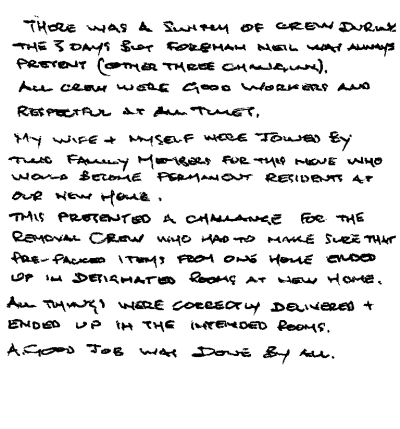 THERE WAS A SWITCH OF CREW DURING
THE 3 DAYS BUT FOREMAN NEIL WAS ALWAYS
PRESENT (OTHER THREE CHANGED).
ALL CREW WERE GOOD WORKERS AND
RESPECTFUL AT ALL TIMES.
MY WIFE + MYSELF WERE JOINED BY
TWO FAMILY MEMBERS FOR THIS MOVE WHO
WOULD BECOME PERMANENT RESIDENTS AT
OUR NEW HOME.
THIS PRESENTED A CHALLANGE FOR THE
REMOVAL CREW WHO HAD TO MAKE SURE THAT
PRE-PACKED ITEMS FROM ONE HOME ENDED
UP IN DESIGNATED ROOMS AT NEW HOME.
ALL THINGS WERE CORRECTLY DELIVERED +
ENDED UP IN THE INTENDED ROOMS.
A GOOD JOB WAS DONE BY ALL.